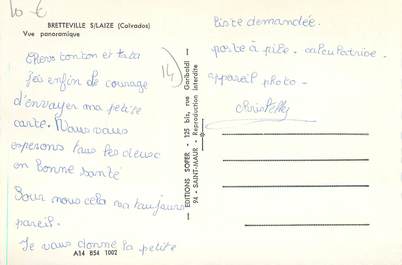 10 €
BRETTEVILLE S/LAIZE (Calvados)
Vue panoramique
Chers tonton et tata
j'ai enfin de courage
d'envoyer ma petite
carte. Nous vous
esperons tous les deux
en bonne santé
Pour nous cela va toujours
pareil.
Je vous donne la petite
A14 854 1002
14)
EDITIONS SOFER - 125 bis, rue Garibaldi
94 - SAINT-MAUR - Reproduction interdite
liste demandée.
poste à pile. calculatrice.
appareil photo.